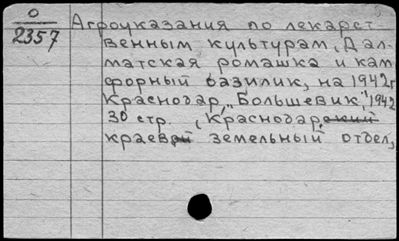 0
2357
Агроуказания по лекарст
венным культурам, Дал-
матская ромашка и кам
форный базилик, на 1942г
Краснодар, "Большевик", 1942
30 стр. (Краснодарский
краевой земельный отдел,